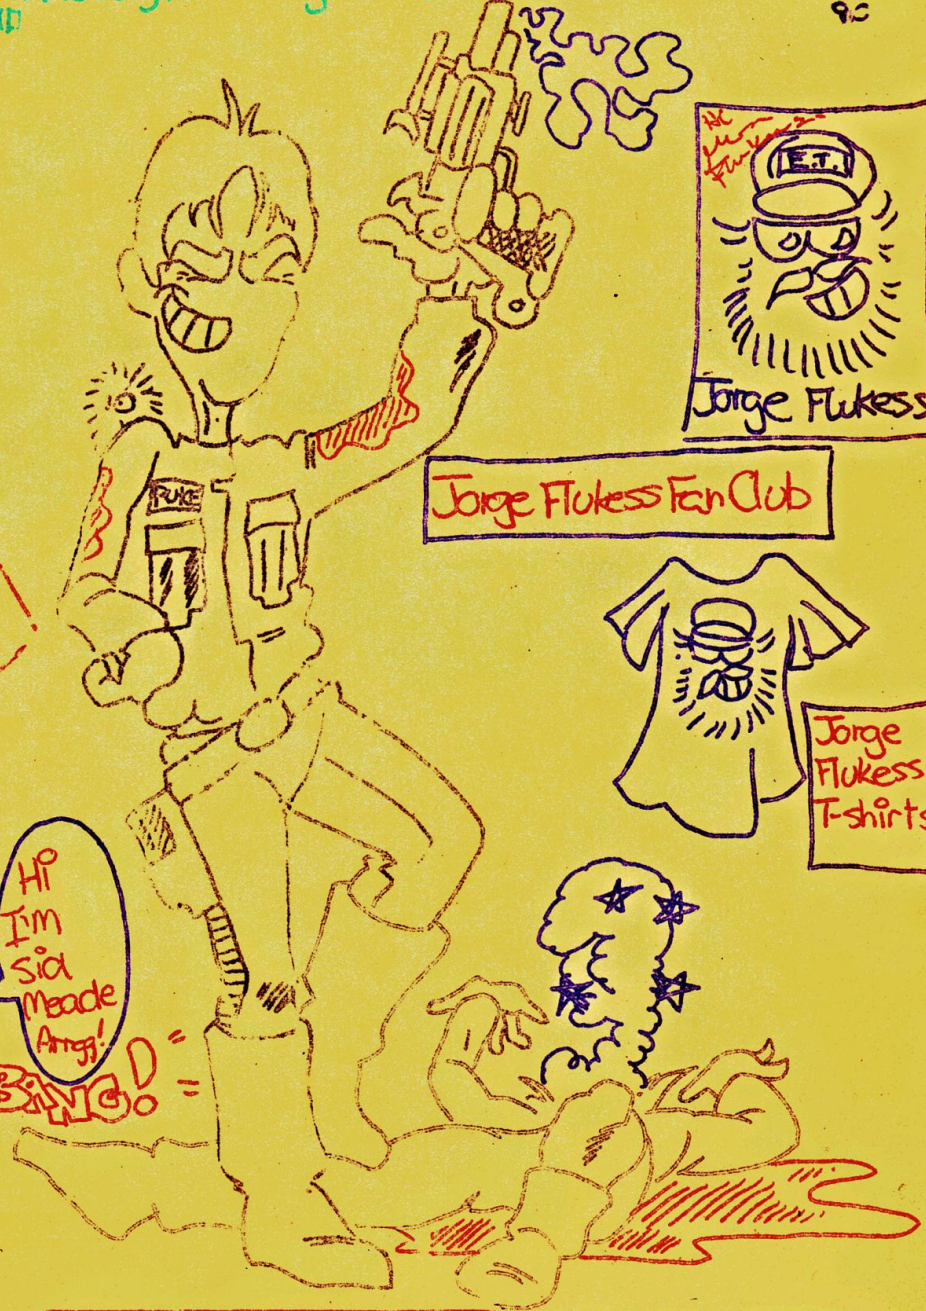 E.T.
Jorge Flukess
Jorge Flukess Fan Club
PUKE
Jorge
Flukess
T-shirts
Hi
I'm
sid
Meade
Arrgg!
BANG!